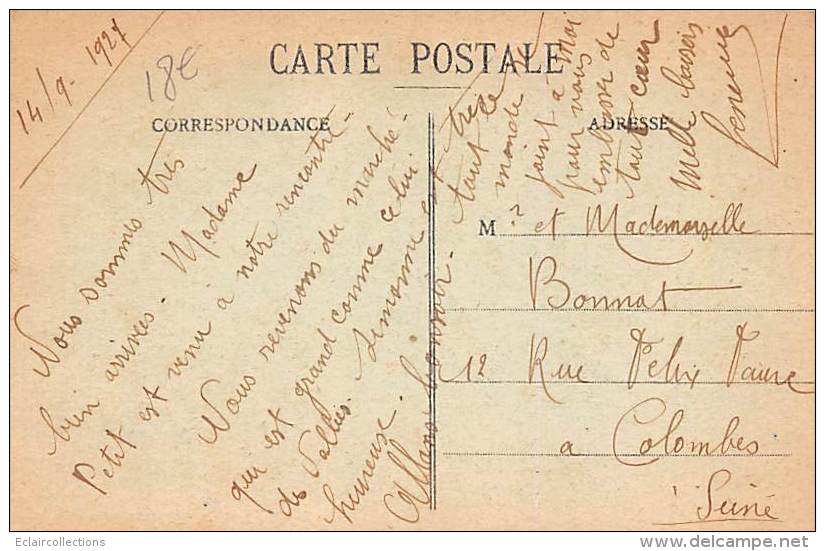 14/9. 1927
18€
CARTE POSTALE
CORRESPONDANCE
ADRESSE
Nous sommes très
bien arrivées. Madame
Petit est venu à notre rencontre.
Nous revenons du marché
qui est grand comme celui
de Vallées. Simonne est très
heureuse.
Allons bonsoir. tout le
monde se
joint à moi
pour vous
embrasser de
tout cœur
Melle
M? et Mademoiselle
Bonnat
12 Rue Felix Faure
a Colombes
Seine
Eclaircollections
delcampe.net